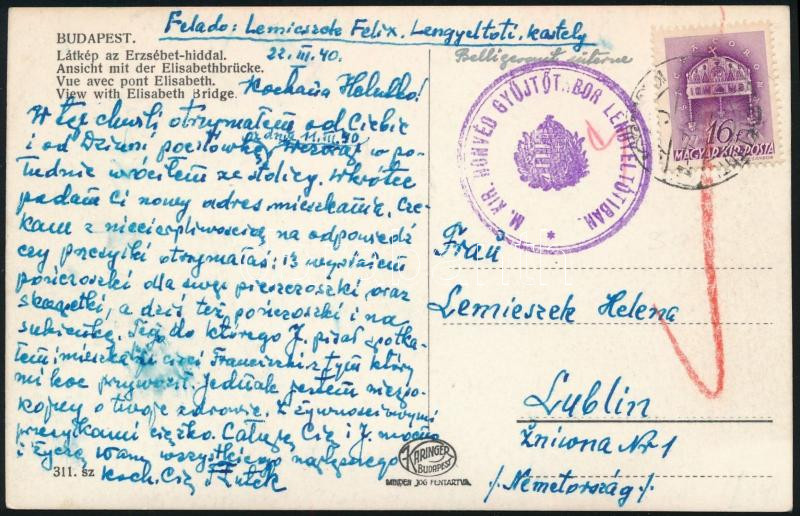 Feladó: Lemieszek Felix. Lengyeltóti, kastély
BUDAPEST.
Látkép az Erzsébet-hiddal.
Ansicht mit der Elisabethbrücke.
Vue avec pont Elisabeth.
View with Elisabeth Bridge.
22.III.40.
Kochana Helutko!
W tej chwili otrzymałem od Ciebie
z dnia 11.III.40
i od Dziuni pocztówkę w po-
łudnie wróciłem ze stolicy. Wkrótce
podam Ci nowy adres mieszkania. Cze-
kam z niecierpliwością na odpowiedź
czy przesyłki otrzymałaś: 13 wysłałem
pończoszki dla swej pieszczoszki, oraz
skarpetki, a dziś też pończoszki i na
sukienkę. do którego J. pisał spotka-
łem i mieszka z tym który
mi koc przywoził. Jednak jestem niespo-
kojny o twoje zdrowie. Z żywnościowymi
przesyłkami ciężko. Całuję Cię i J. mocno
i życzę wam wszystkiego najlepszego
koch. Cię Felek
311. sz
KARINGER
BUDAPEST
MINDEN JOG FENTARTVA.
Belligerent interne
M. KIR. HONVÉD GYŰJTŐTÁBOR LENGYELTÓTIBAN.
16 F
MAGYAR KIR. POSTA
Frau
Lemieszek Helena
Lublin
Żniwna Nr 1
/Németország/